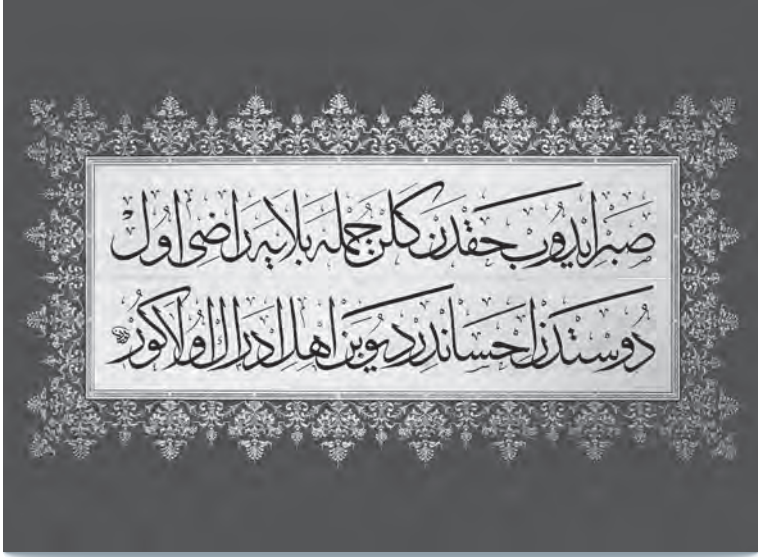 صبر ايدوب حقدن كلن جمله بلايه راضى اول
دوستدن احساندر ديوبن اهل ادراك اولا كور